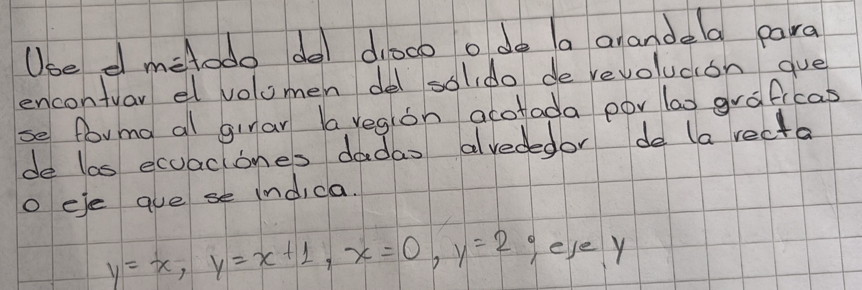 Use el método del disco o de la arandela para
encontrar el volumen del sólido de revolución que
se forma al girar la región acotada por las gráficas
de las ecuaciónes dadas alrededor de la recta
o eje que se indica.
y = x, y = x + 1, x = 0, y = 2 ; eje y